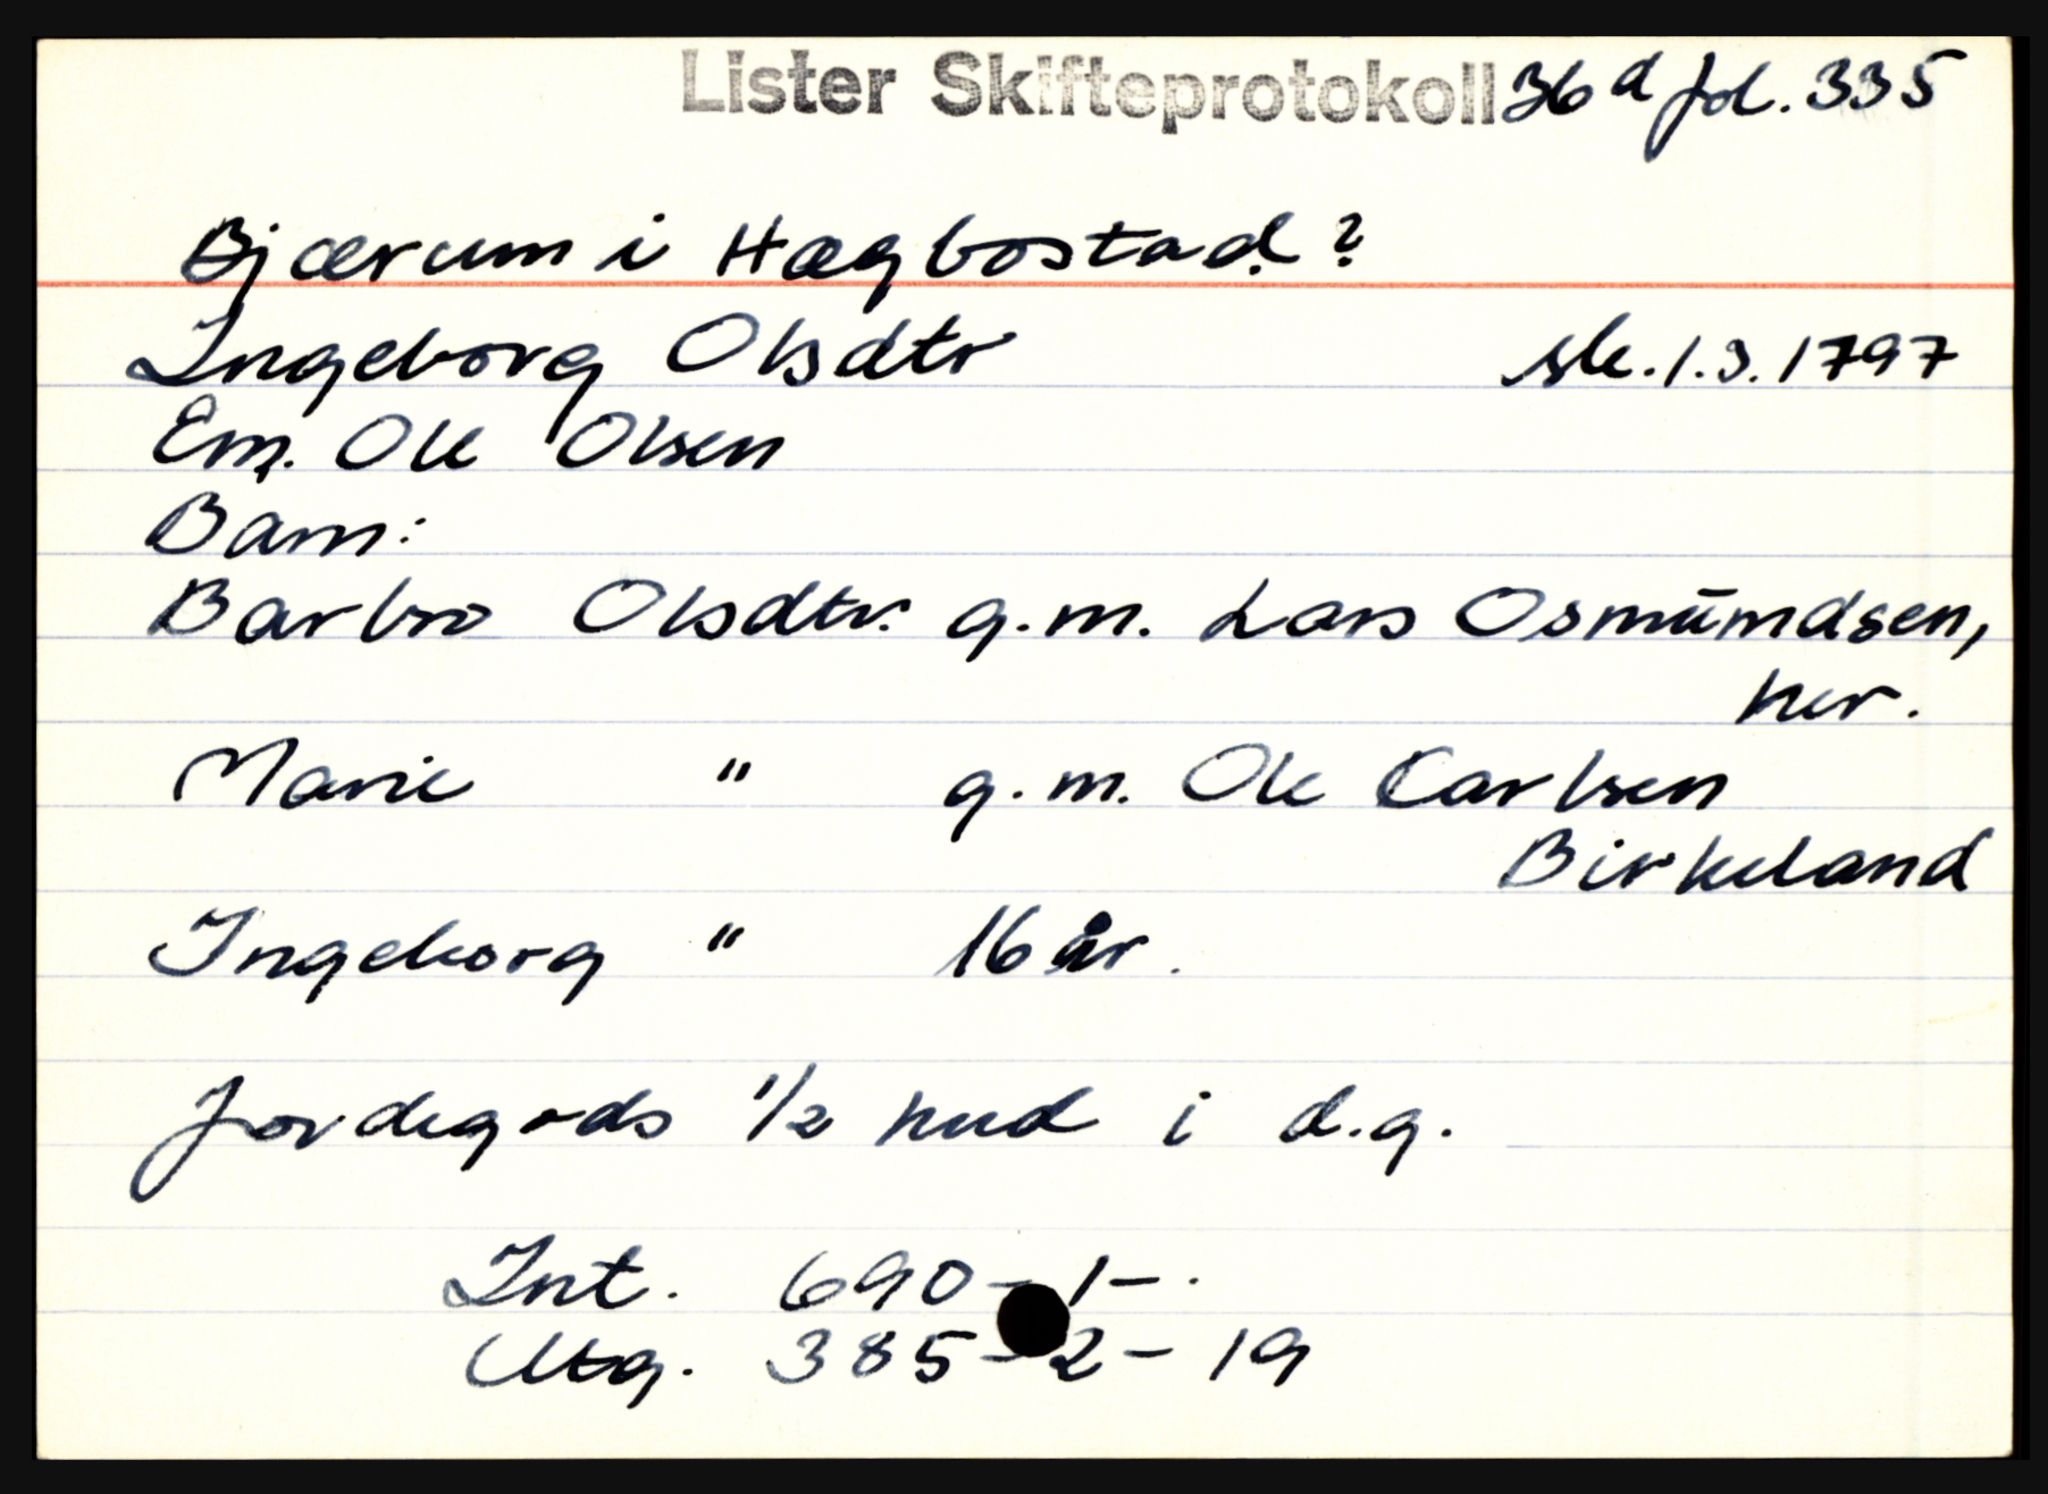 Lister Skifteprotokoll 36d fol. 335
Bjærum i Hægbostad?
Ingeborg Olsdtr sk. 1.3.1797
Em. Ole Olsen
Barn:
Barbro Olsdtr. g.m. Lars Osmundsen,
her.
Marie " g.m. Ole Carlsen
Birkeland
Ingeborg " 16 år.
Jordegods 1/2 hud i d.g.
Int. 690 - 1 - .
Utg. 385 - 2 - 19